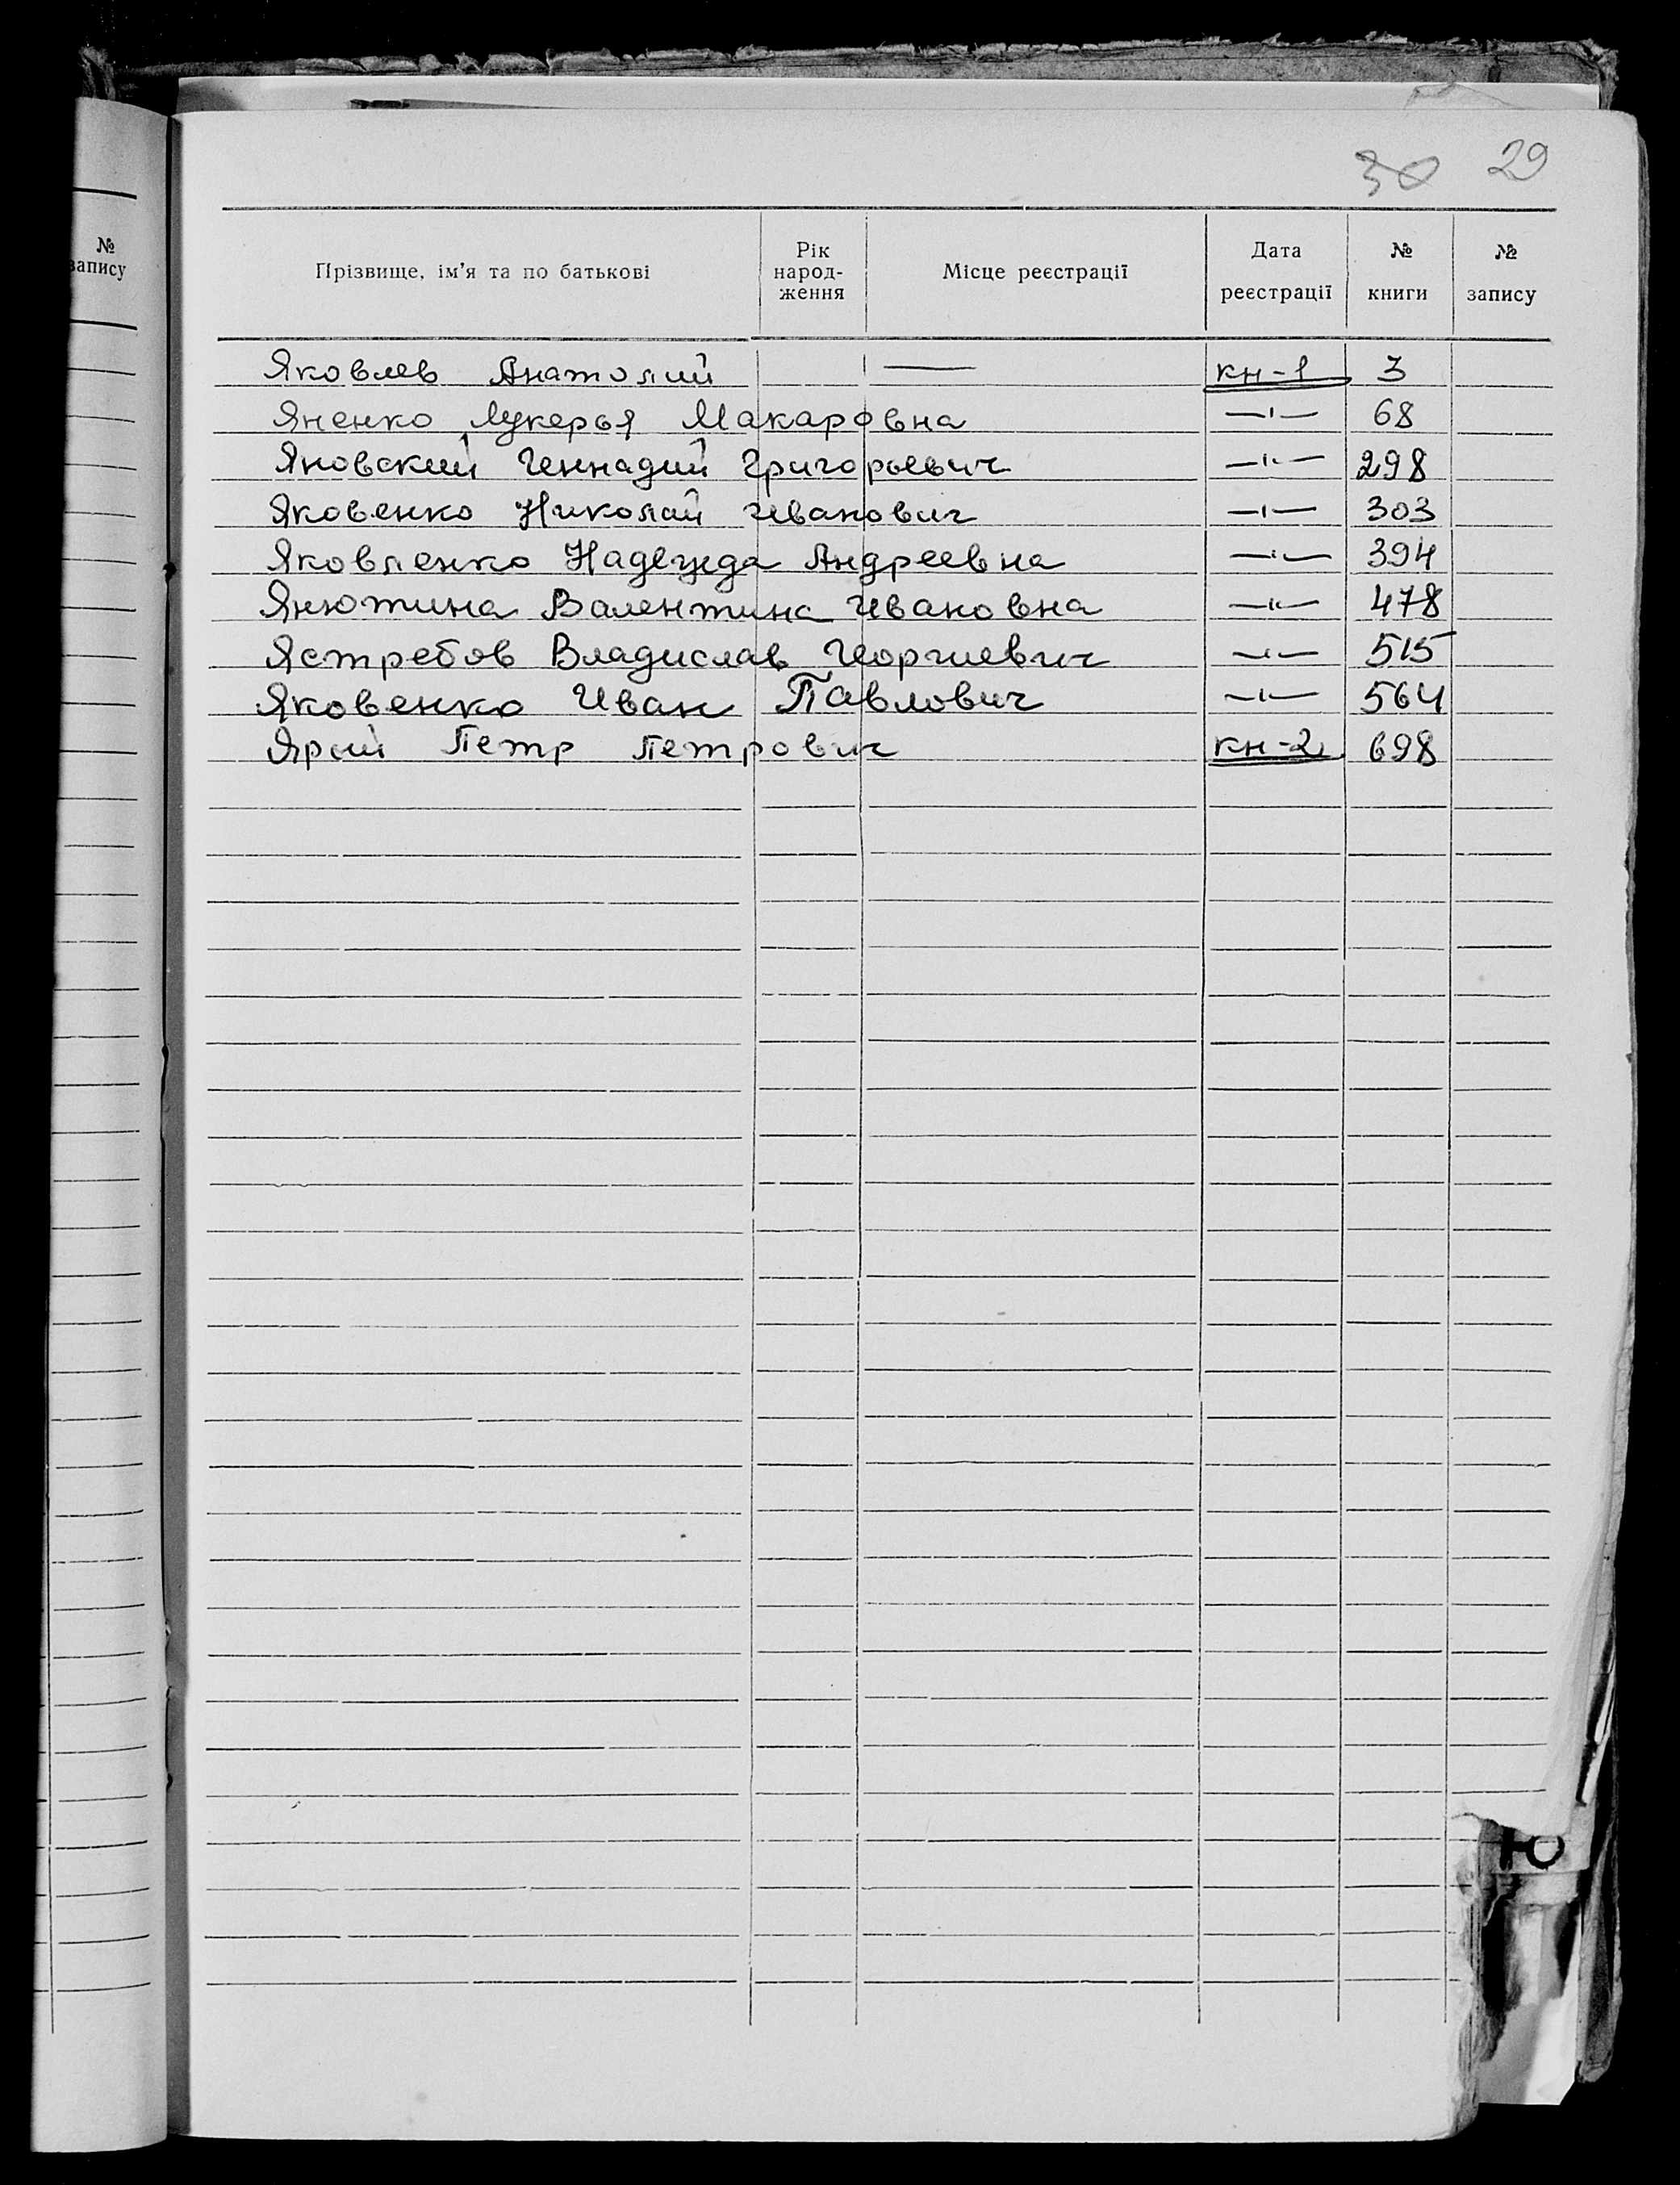 30 29
№ запису
Прізвище, ім'я та по батькові Рік народ-ження Місце реєстрації Дата реєстрації № книги № запису
Яковлев Анатолий — кн-1 3
Яненко Лукерья Макаровна —"— 68
Яновский Геннадий Григорьевич —"— 298
Яковенко Николай Иванович —"— 303
Яковленко Надежда Андреевна —"— 394
Янютина Валентина Ивановна —"— 478
Ястребов Владислав Георгиевич —"— 515
Яковенко Иван Павлович —"— 564
Ярый Петр Петрович кн-2 698
Ю